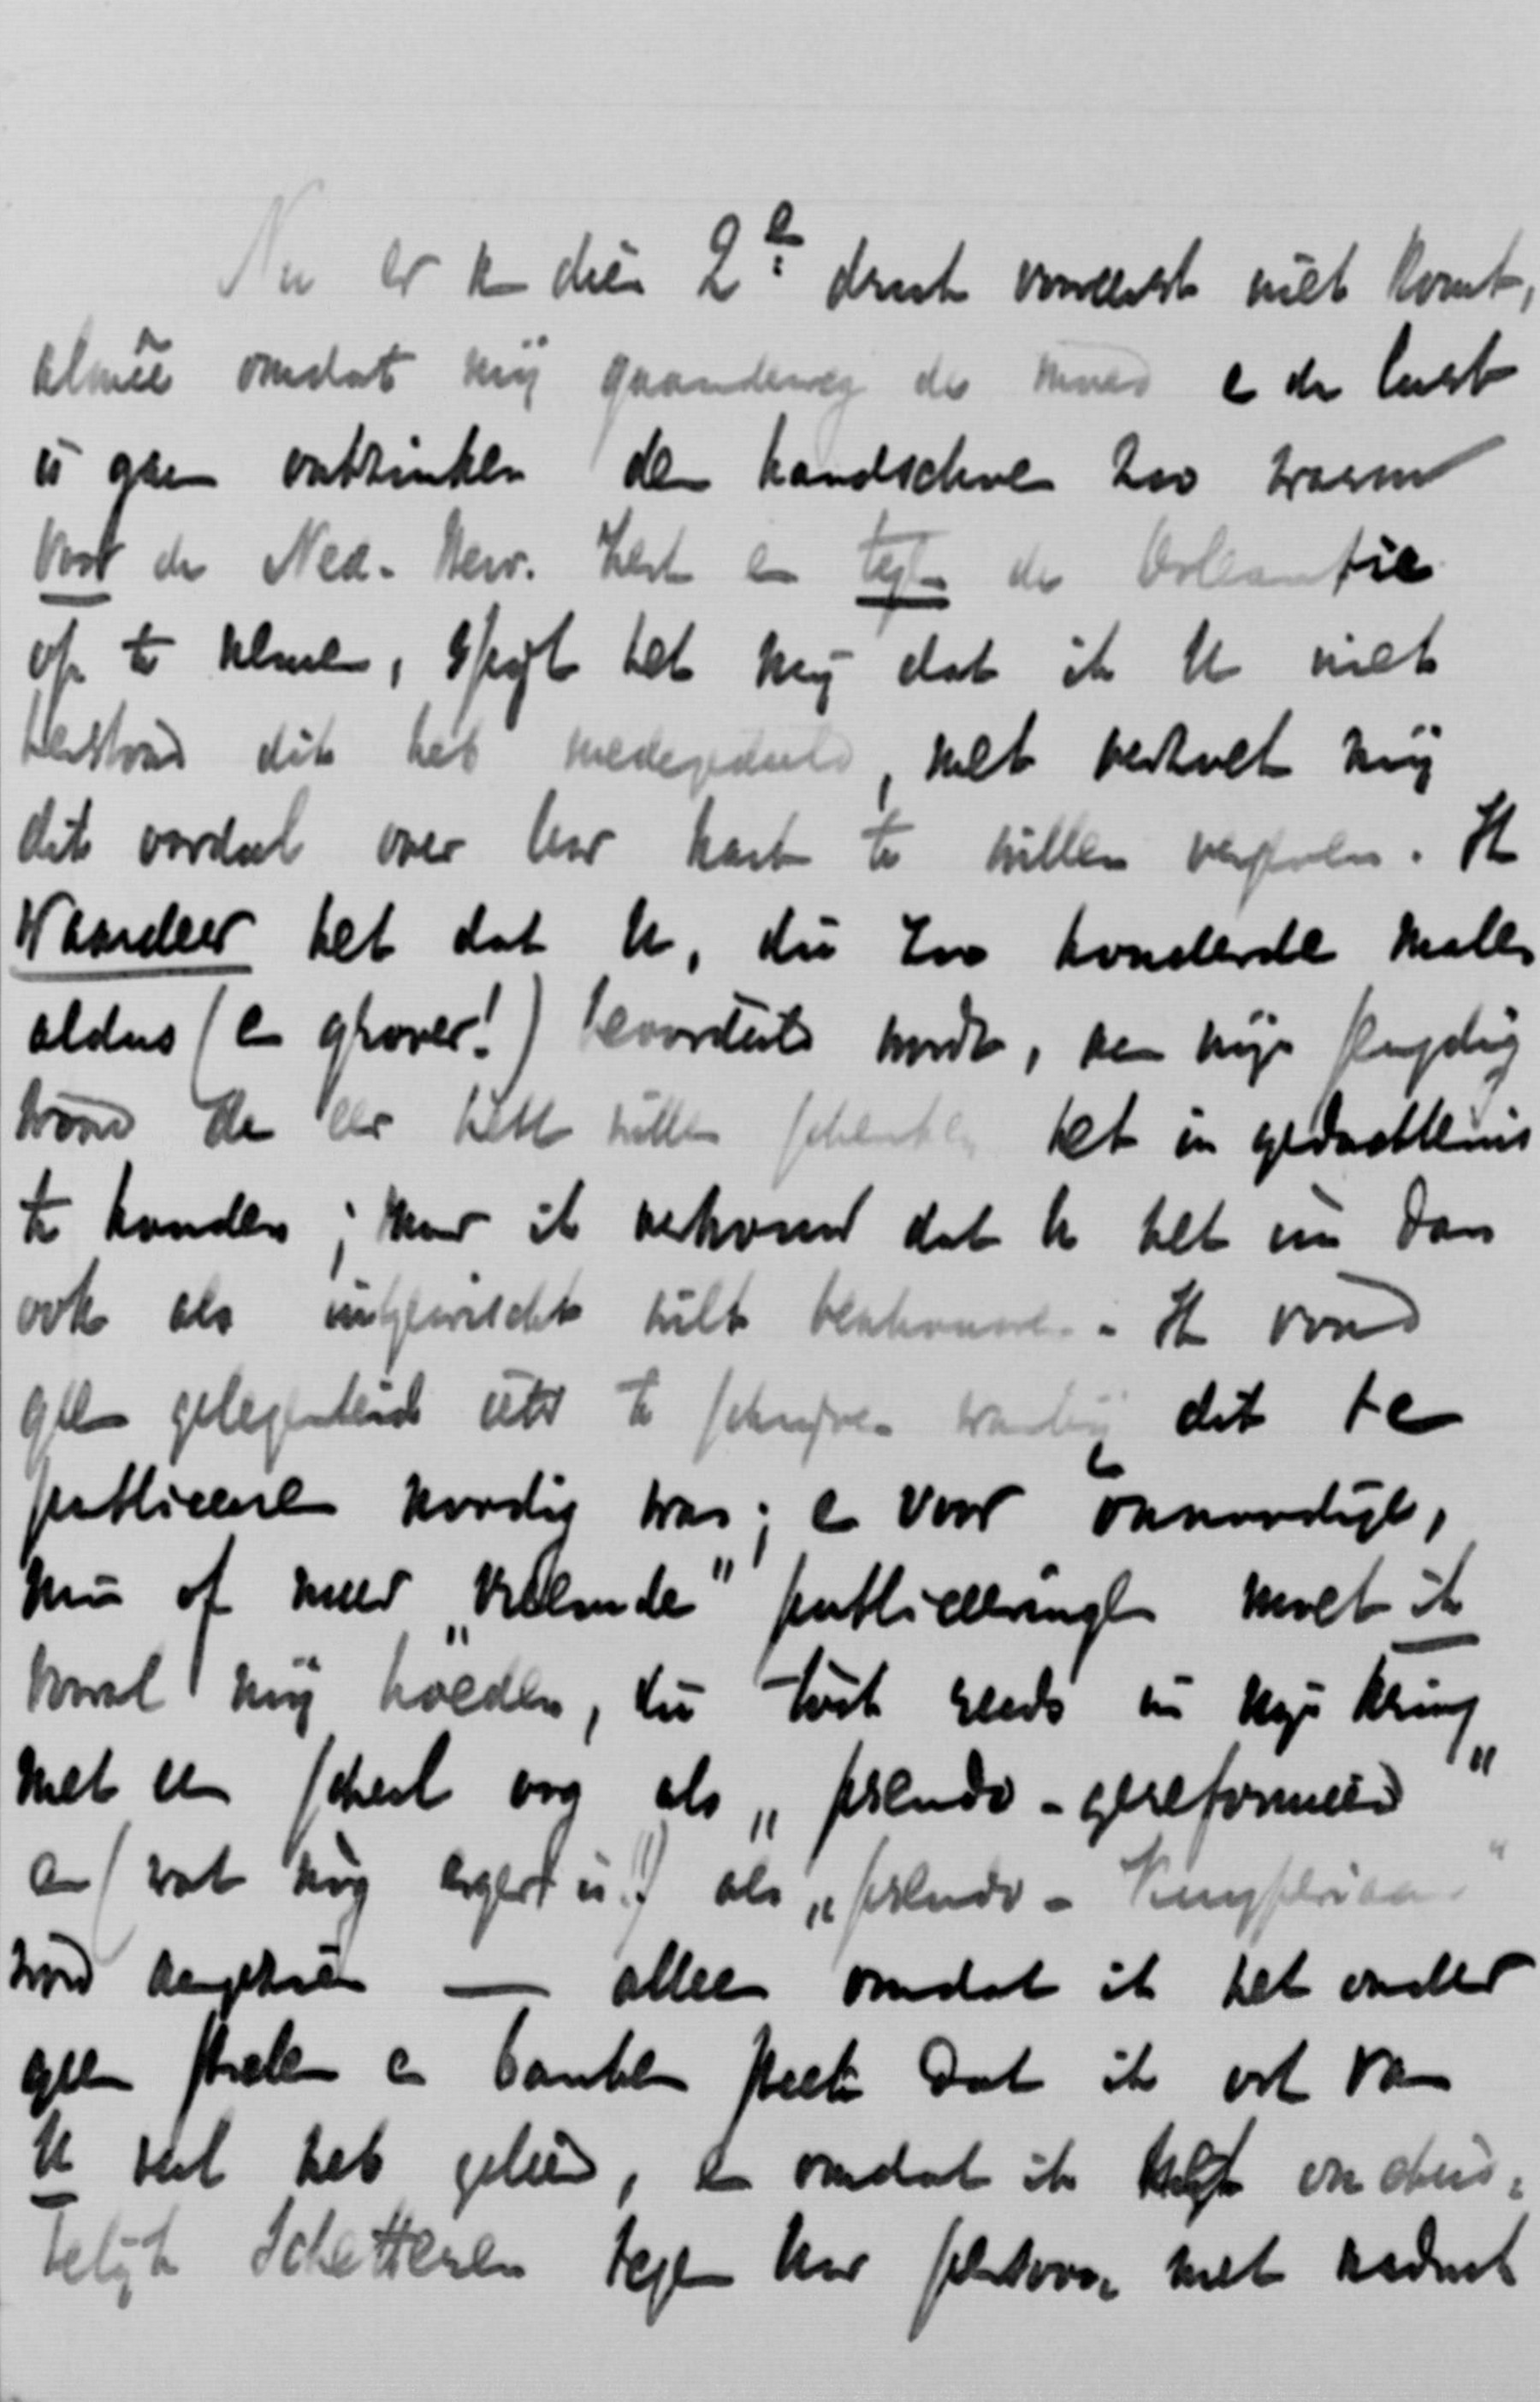 Nu er van dien 2e druk vooreerst niet komt,
almeê omdat mij gaandeweg de moed en de lust
is gaan ontzinken den handschoen zoo warm
voor de Ned. Herv. Kerk en tegen de Doleantie
op te nemen, spijt het mij dat ik U niet
terstond dit heb medegedeeld, met verzoek mij
dit oordeel over Uw kerk te willen vergeven. Ik
Waardeer het dat U, die zoo honderde malen
aldus (en grover!) beoordeeld wordt, aan mijn
woord de eer hebt willen schenken het in gedachtenis
te houden; maar ik vertrouw dat U het nu dan
ook als uitgewischt wilt beschouwen. Ik vond
geen gelegenheid iets te schrijven waarbij dit te
publiceeren noodig was; en voor onnoodige,
min of meer „vreemde" publiceeringen moet ik
vooral mij hoeden, die toch reeds in mijn kring
met een scheel oog als „pseudo-gereformeerd"
en (wat nog erger is!!) als „pseudo-Kuyperiaan"
word aangezien — alleen omdat ik het onder
geen stoelen en banken steek dat ik ook van
U veel heb geleerd, en omdat ik het onchris-
telijk Schetteren tegen Uw persoon met nadruk